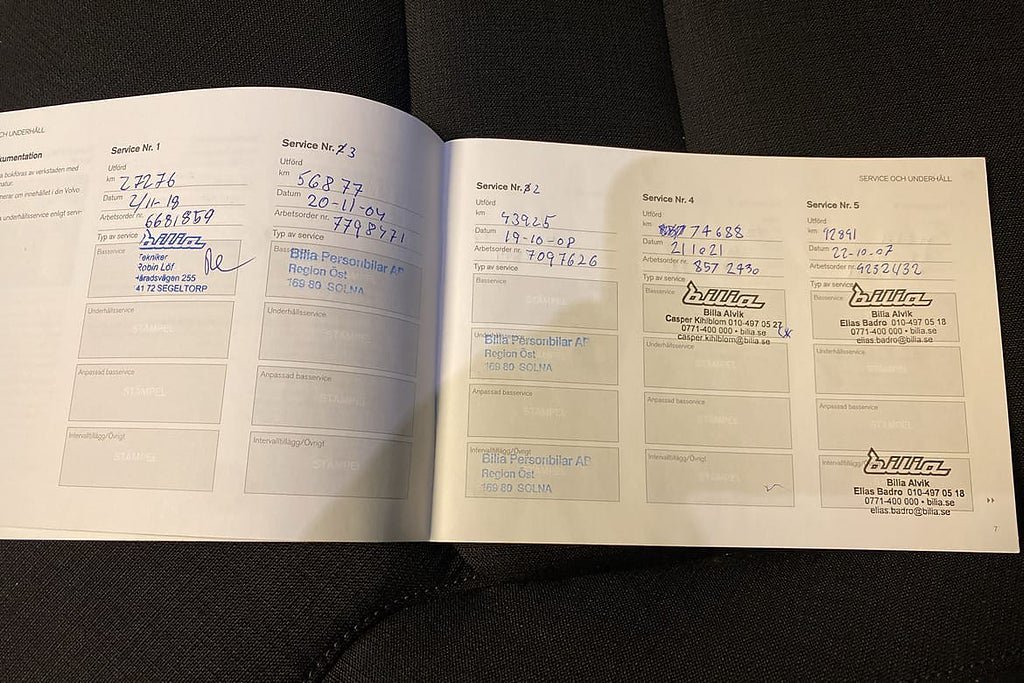 OCH UNDERHÅLL
kumentation
Service Nr. 1
Utförd
km 27276
Datum 2/11-18
Arbetsorder nr. 6681859
Typ av service
Basservice
bilia
Tekniker
Robin Löf
Häradsvägen 255
141 72 SEGELTORP
Underhållsservice
STÄMPEL
Anpassad basservice
STÄMPEL
Intervalltillägg/Övrigt
STÄMPEL
Service Nr. 3
Utförd
km 56877
Datum 20-11-04
Arbetsorder nr. 7798471
Typ av service
Basservice
Bilia Personbilar AB
Region Öst
169 80 SOLNA
Underhållsservice
STÄMPEL
Anpassad basservice
STÄMPEL
Intervalltillägg/Övrigt
STÄMPEL
Service Nr. 2
Utförd
km 43925
Datum 19-10-08
Arbetsorder nr. 7097626
Typ av service
Basservice
STÄMPEL
Underhållsservice
Bilia Personbilar AB
Region Öst
169 80 SOLNA
Anpassad basservice
STÄMPEL
Intervalltillägg/Övrigt
Bilia Personbilar AB
Region Öst
169 80 SOLNA
Service Nr. 4
Utförd
km 74688
Datum 211021
Arbetsorder nr. 8572430
Typ av service
Basservice
bilia
Bilia Alvik
Casper Kihlblom 010-497 05 27
0771-400 000 • bilia.se
casper.kihlblom@bilia.se
Underhållsservice
STÄMPEL
Anpassad basservice
STÄMPEL
Intervalltillägg/Övrigt
STÄMPEL
SERVICE OCH UNDERHÅLL
Service Nr. 5
Utförd
km 92891
Datum 22-10-07
Arbetsorder nr. 9232432
Typ av service
Basservice
bilia
Bilia Alvik
Elias Badro 010-497 05 18
0771-400 000 • bilia.se
elias.badro@bilia.se
Underhållsservice
STÄMPEL
Anpassad basservice
STÄMPEL
Intervalltillägg/Övrigt
bilia
Bilia Alvik
Elias Badro 010-497 05 18
0771-400 000 • bilia.se
elias.badro@bilia.se
7